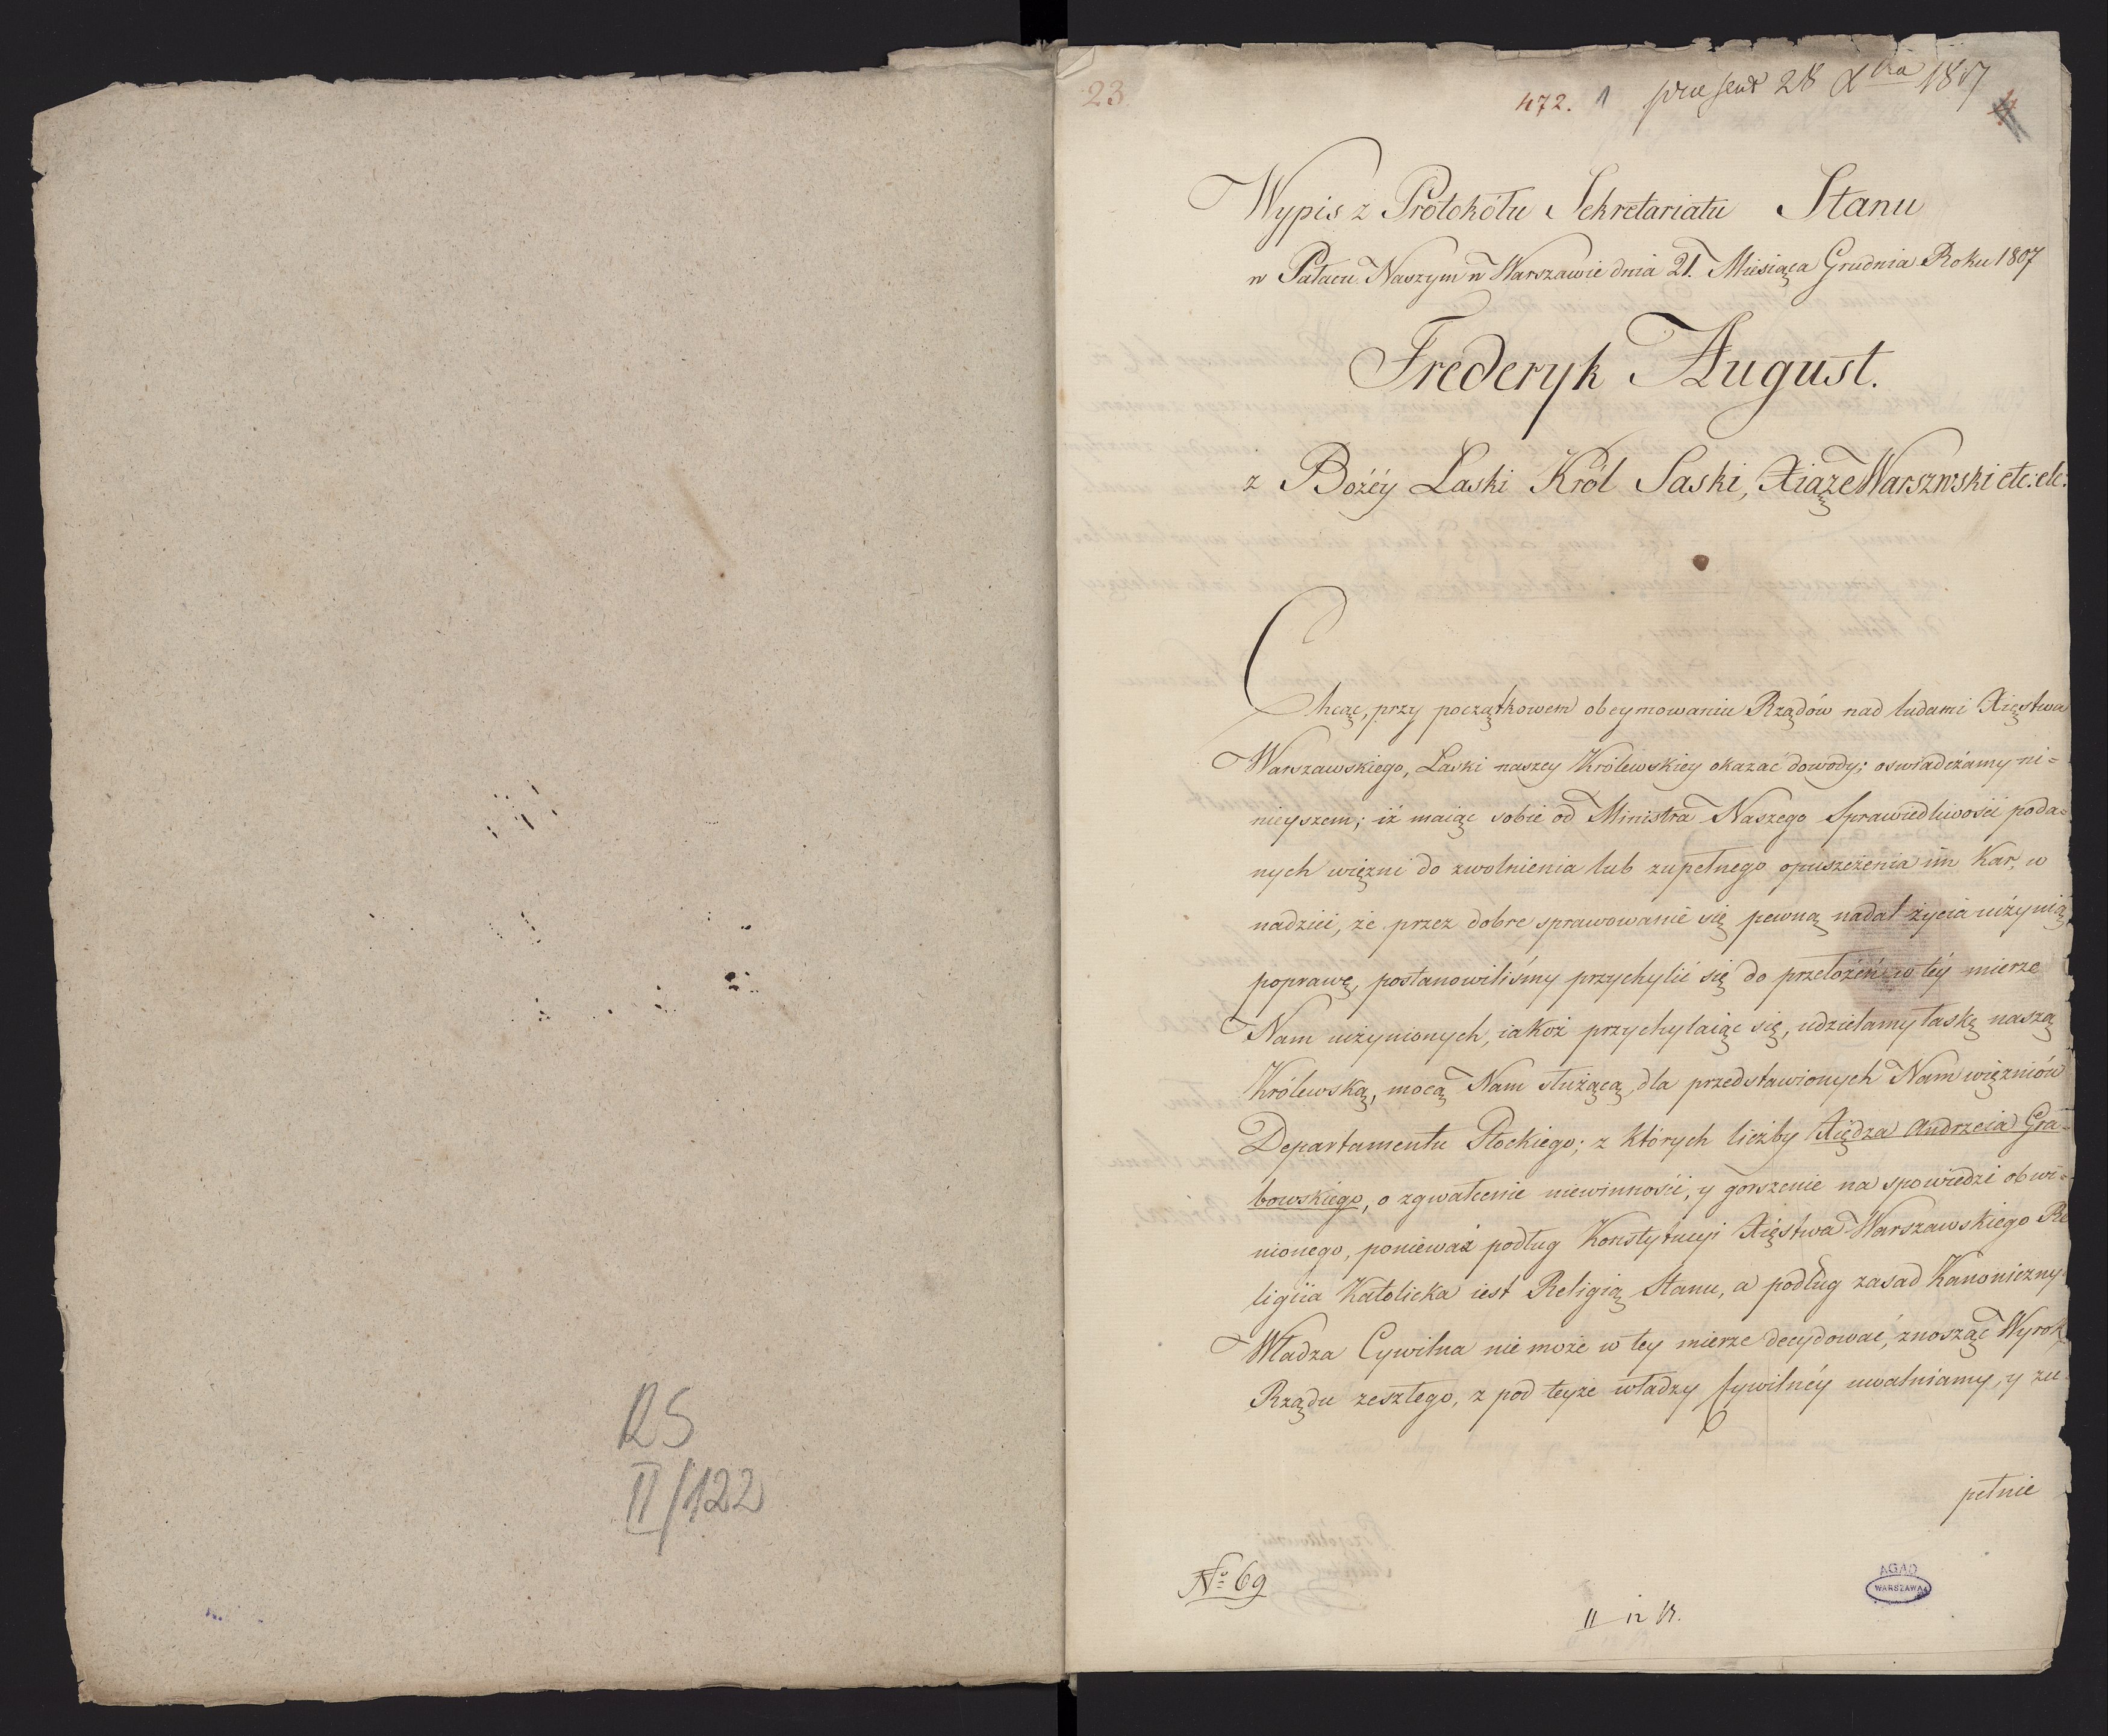 RS
II/122
23.
472. 1 praesent 28 Xbra 1807
Wypis z Protokołu Sekretariatu Stanu
w Pałacu Naszym w Warszawie dnia 21. Miesiąca Grudnia Roku 1807
Frederyk August.
z Bożéy Łaski Król Saski, Xiąże Warszwski etc: etc:
Chcąc, przy początkowem obeymowaniu Rządów nad ludami Xięstwa
Warszawskiego, Łaski naszey Królewskiey okazać dowody; oswiadczamy ni=
nieyszem; iż maiąc sobie od Ministra Naszego Sprawiedliwości poda=
nych więzni do zwolnienia lub zupełnego opuszczenia im Kar, w
nadziei, że przez dobre sprawowanie się pewną nadal życia uczynią
poprawę, postanowiliśmy przychylić się do przełożeń w téy mierze
Nam uczynionych, iakoż przychylaiąc się, udzielamy łaskę naszą
Królewską, mocą Nam służącą, dla przedstawionych Nam więzniów
Departamentu Płockiego; z których liczby Xiędza Andrzeia Gra=
bowskiego, o zgwałcenie niewinności, y gorszenie na spowiedzi obwi=
nionego, ponieważ podług Konstytucyi Xięstwa Warszawskiego Re
ligiia Katolicka iest Religią Stanu, a podług zasad Kanoniczny
Władza Cywilna nie może w tey mierze decydować, znosząc Wyrok
Rządu zeszłego, z pod teyże władzy Cywilnéy uwalniamy, y zu
pełnie
No 69
AGAD
WARSZAWA